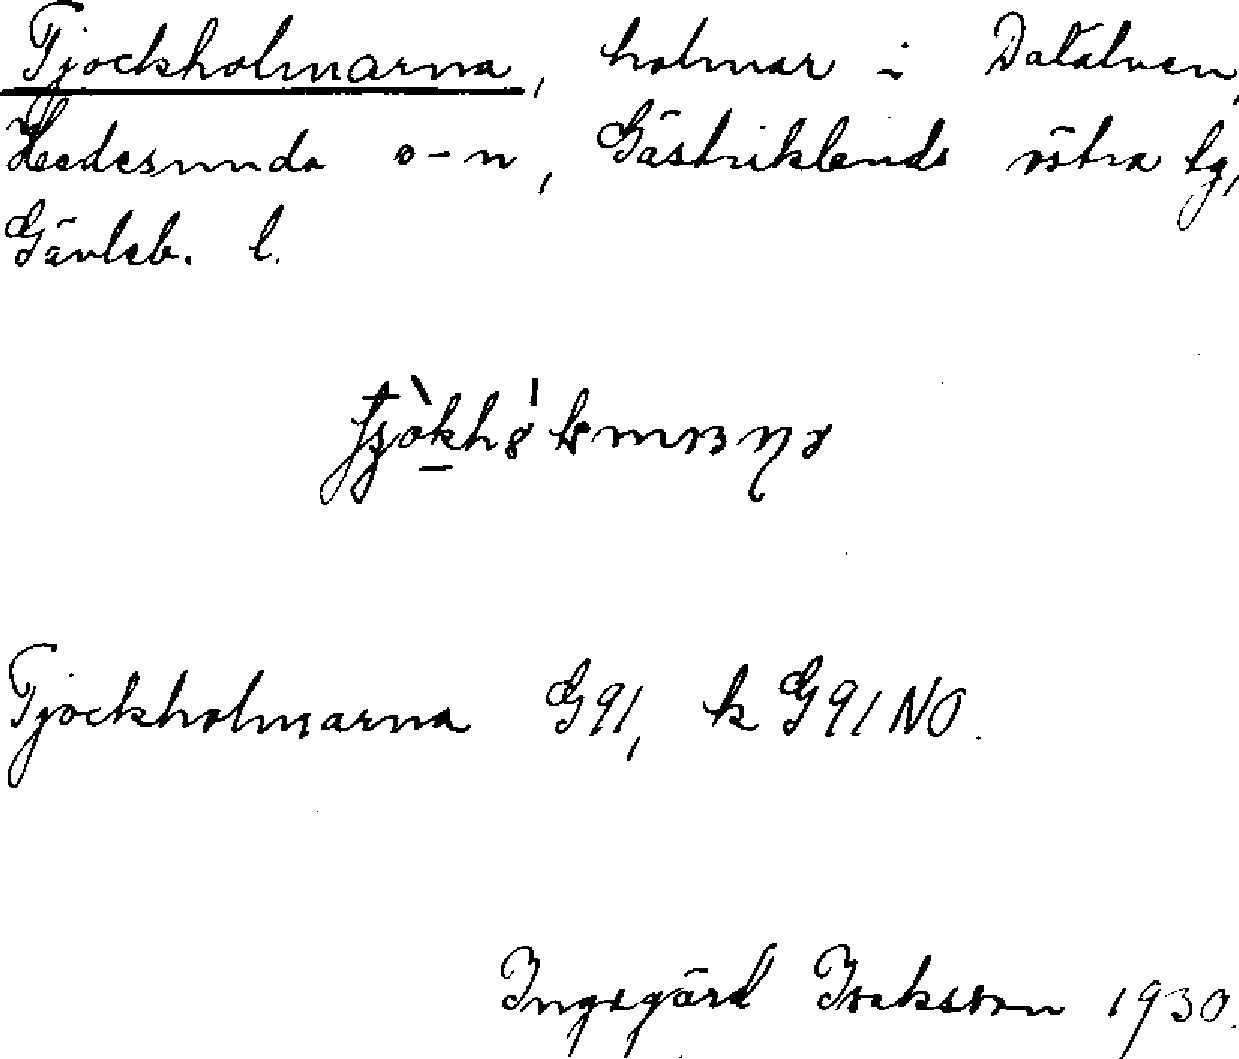 Tjockholmarna, holmar i Dalälven,
Hedesunda s-n, Gästriklands östra tg,
Gävleb. l.
Tjockholmarna G91, k G91NO.
Ingegärd Isaksson 1930.